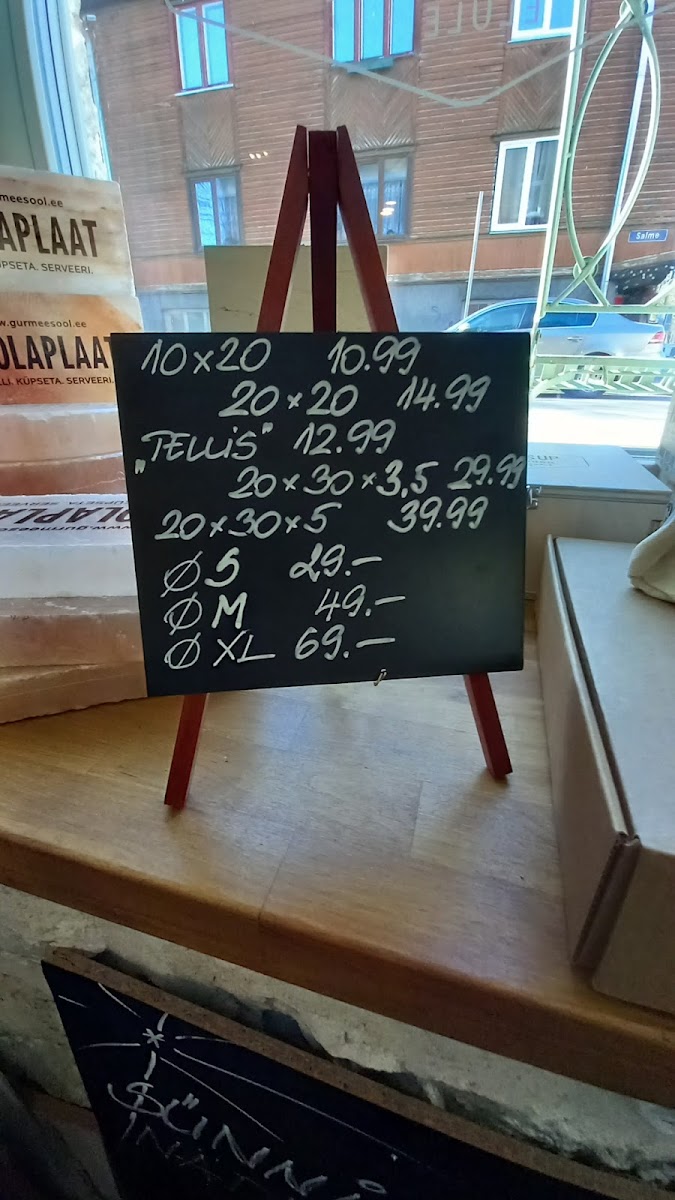 meesool.ee
APLAAT
KÜPSETA. SERVEERI.
www.gurmeesool.ee
OLAPLAAT
KÜPSETA. SERVEERI.
10×20 10.99
20×20 14.99
"TELLIS" 12.99
20×30×3,5 29.99
20×30×5 39.99
Ø S 29.–
Ø M 49.–
Ø XL 69.–
Salme
SÜNNI